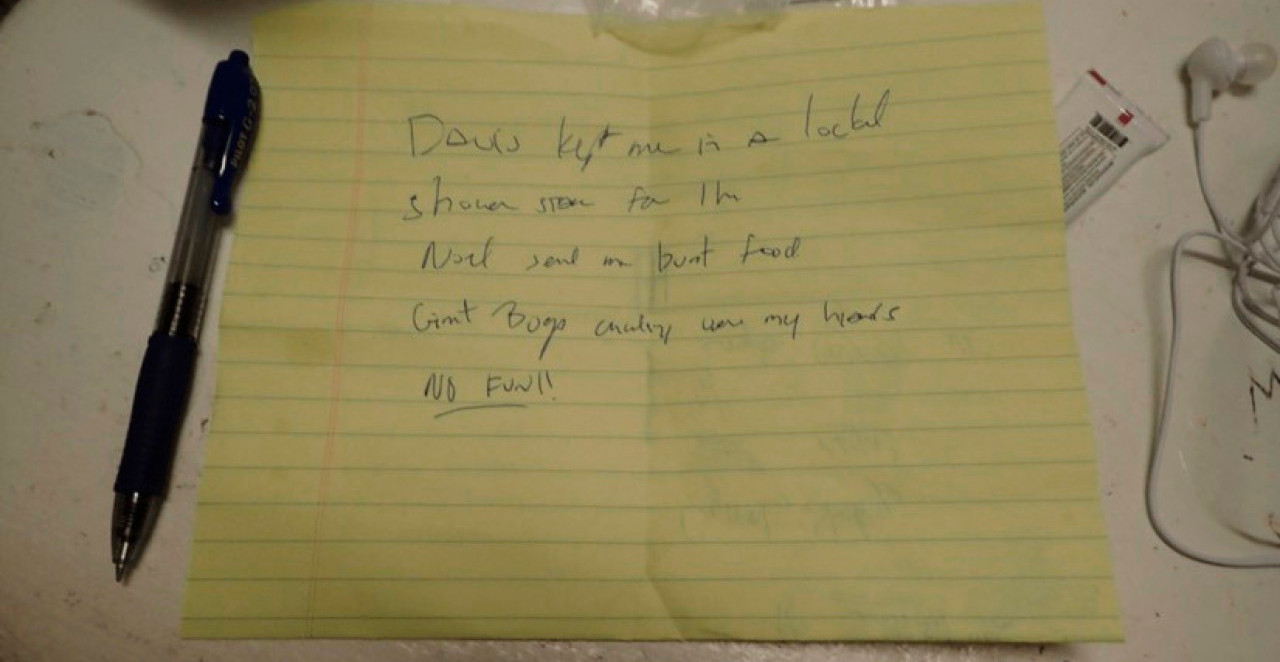 Davis kept me in a locked
shower stall for 1hr
Noel send me burnt food
Giant Bugs crawling over my hands
NO FUN!!
PILOT G-2